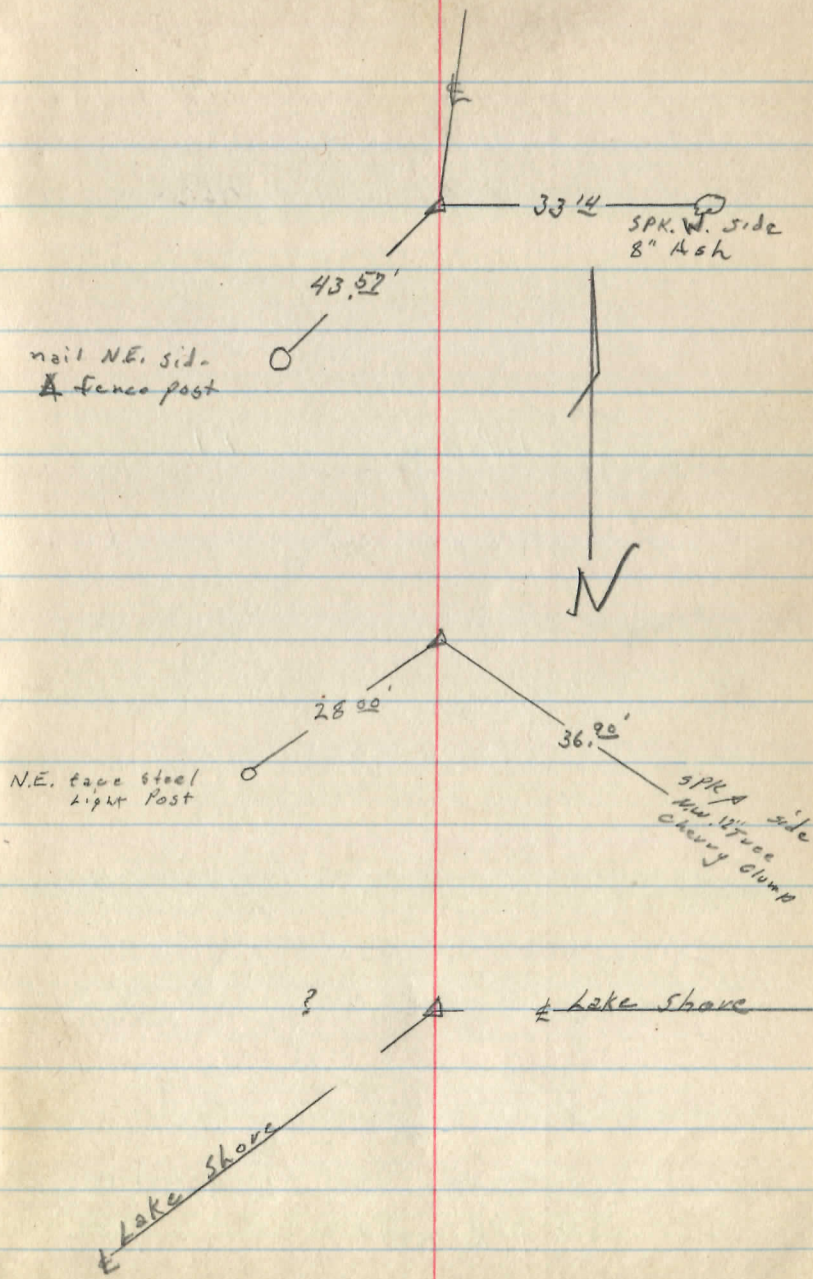 ℄
33 14
SPK. W. side
8" Ash
43.57'
nail N.E. side
fence post
N
28 00'
36.90'
N.E. face Steel
Light Post
SPK side
N.W. 12" Tree
Cherry Clump
?
℄ Lake Shore
℄ Lake Shore